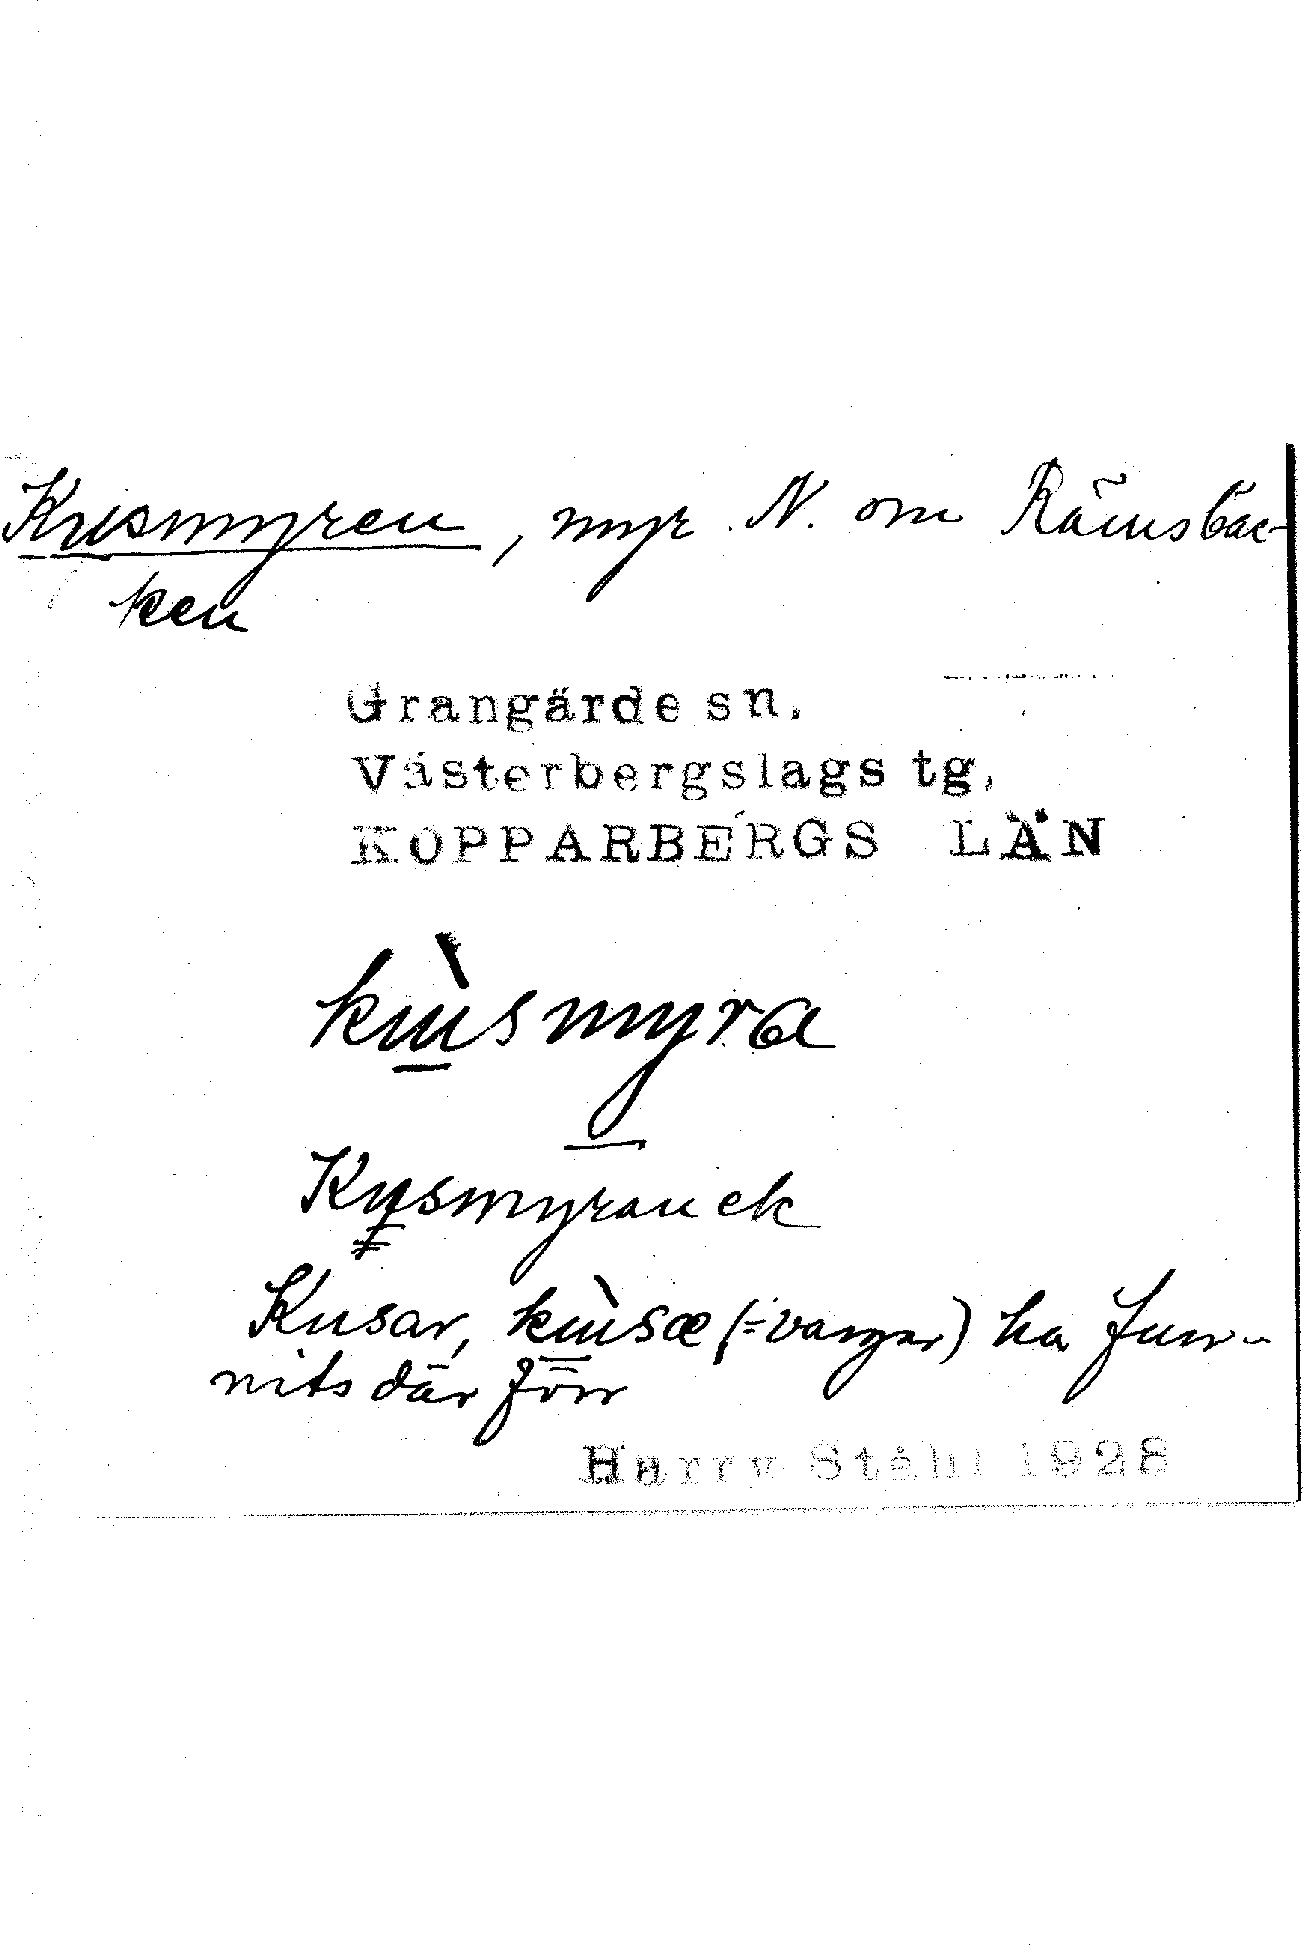 Kusmyren, myr N. om Rämsbac-
ken
Grangärde sn.
Västerbergslags tg.
KOPPARBERGS LÄN
kùsmyra
Kusmyran ek
Kusar, kùsæ (= vargar) ha fun-
nits där förr
Harry Ståhl 1928